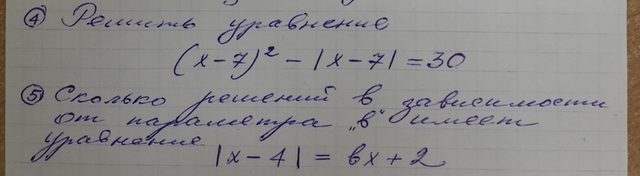 ④ Решить уравнение
(x-7)² - |x-7| = 30
⑤ Сколько решений в зависимости
от параметра „в“ имеет
уравнение
|x-4| = вx+2